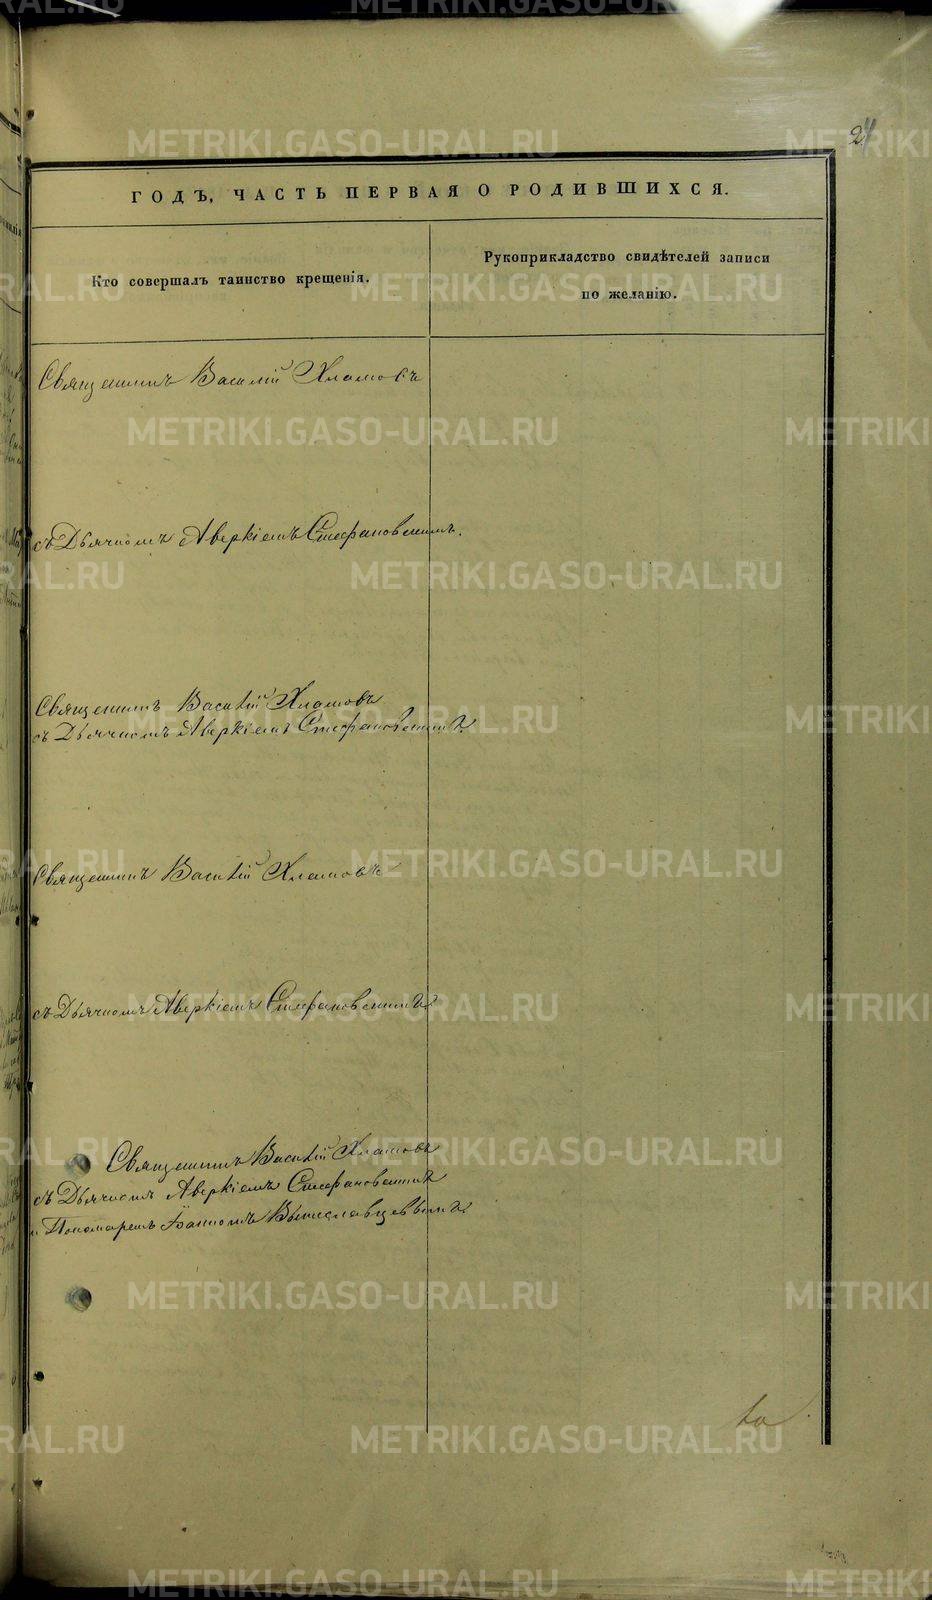 24
ГОДЪ, ЧАСТЬ ПЕРВАЯ О РОДИВШИХСЯ.
Кто совершалъ таинство крещенія.
Рукоприкладство свидѣтелей записи
по желанію.
Священникъ Василій Хламовъ
съ Дьячкомъ Аверкіемъ Стефановскимъ.
Священникъ Василій Хламовъ
съ Дьячкомъ Аверкіемъ Стефановскимъ.
Священникъ Василій Хламовъ
съ Дьячкомъ Аверкіемъ Стефановскимъ
Священникъ Василій Хламовъ
съ Дьячкомъ Аверкіемъ Стефановскимъ
и Пономаремъ Іоанномъ
METRIKI.GASO-URAL.RU